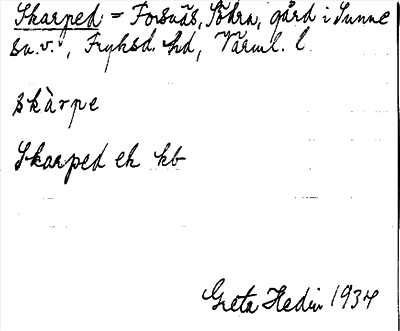 Skarped = Forsnäs, Södra, gård i Sunne
sn.v., Fryksd. hd, Värml. l.
skàrpe
Skarped ek kb
Greta Hedin 1934